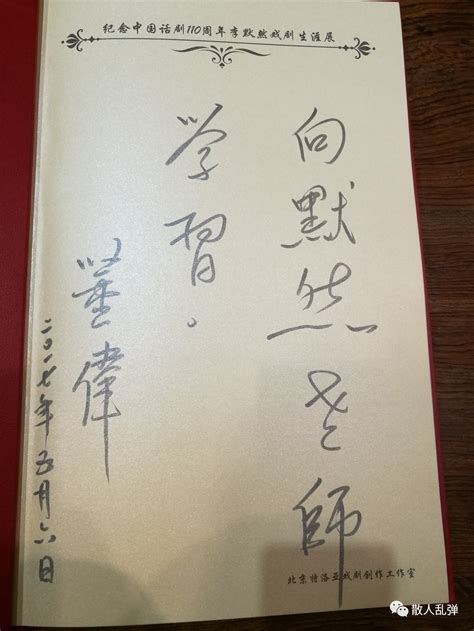 纪念中国话剧110周年李默然戏剧生涯展
向默然老师
学習。
董偉
二〇一七年五月六日
北京特洛亚戏剧创作工作室
散人乱弹